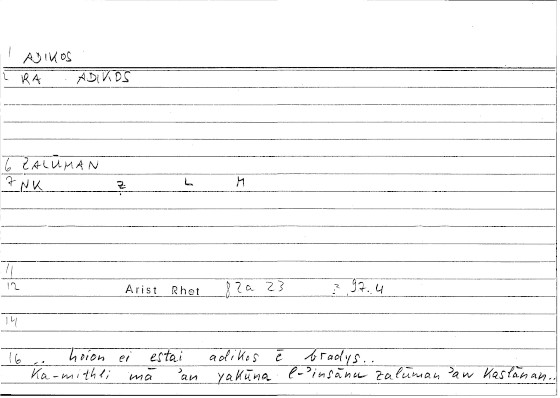 1 ADIKOS
2 RA ADIKOS
6 ẒALŪMAN
7 NK Ẓ L M
11
12 Arist Rhet 82a 23 97.4
14
16 .. hoion ei estai adikos ē bradys..
Ka-mithli mā 'an yakūna l-'insānu ẓalūman 'aw Kaslānan..